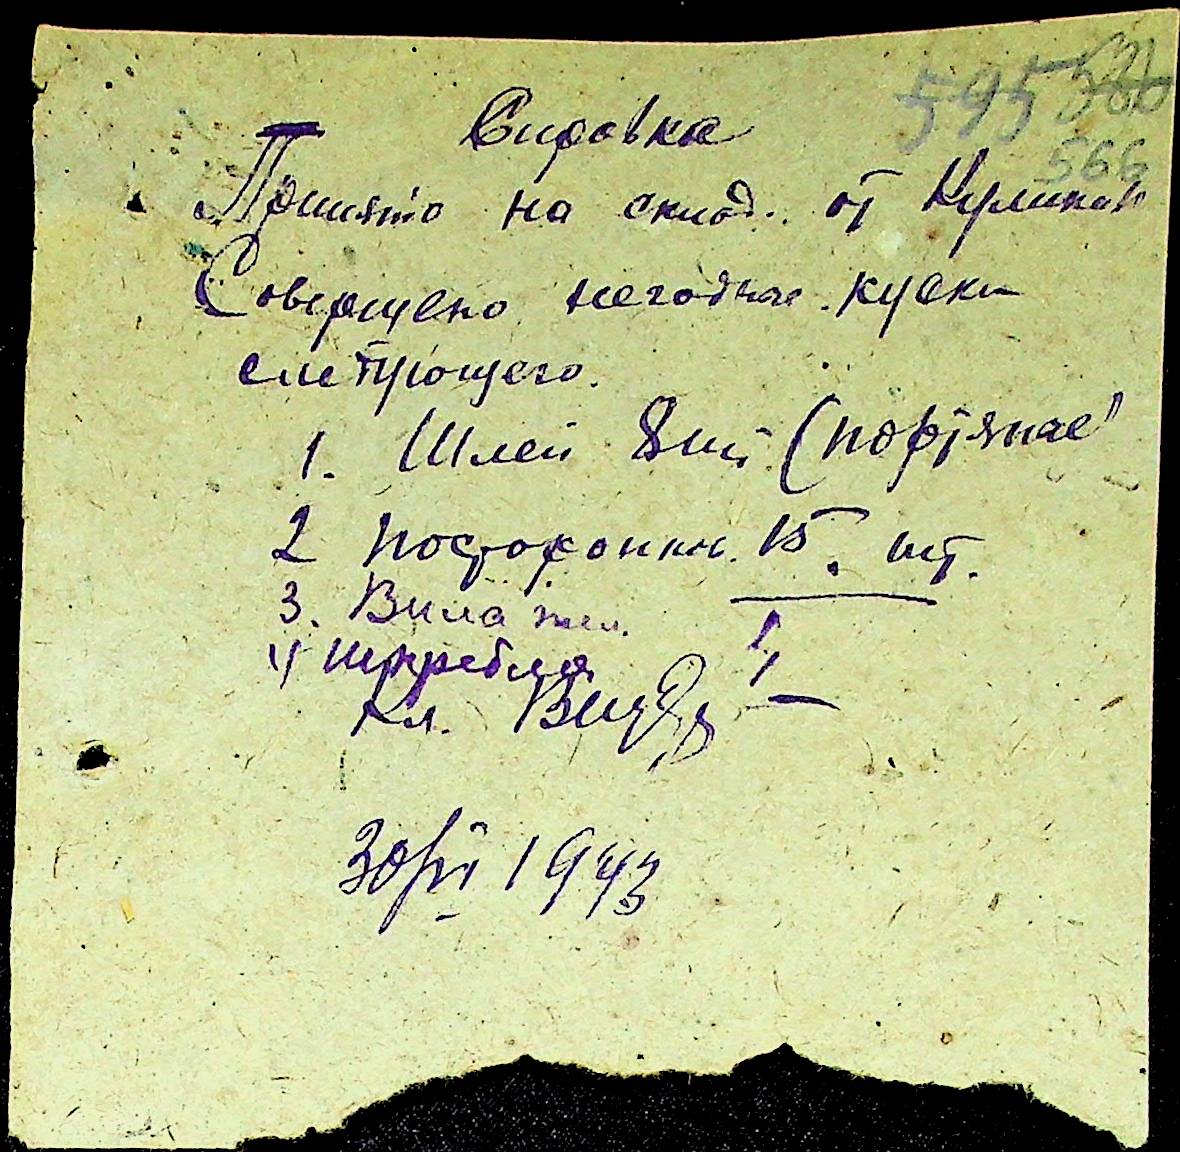 595 566
566
Справка
Принято на склад. от Куликов
Совершено негодные куски
следующего.
1. Шлей 8 шт (портяные)
2 Посторонки. 15. шт.
3. Вила жел. 1
4
Кл.
30/VI 1943